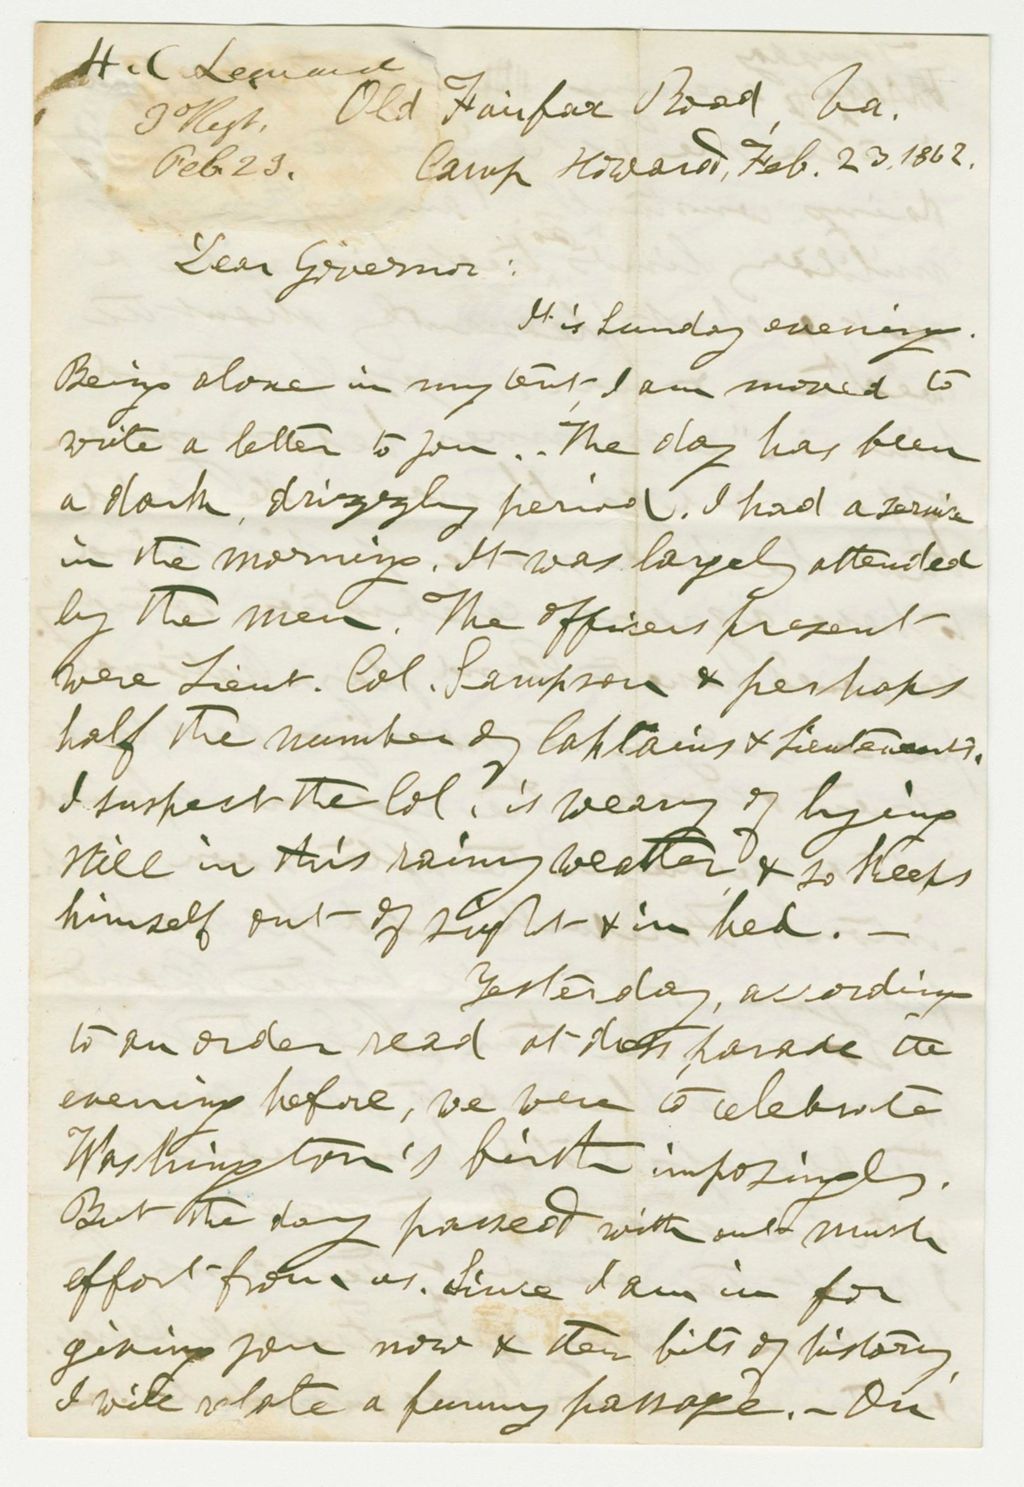 H. C Leonard
3d Regt.
Feb. 23.
Old Fairfax Road, Va.
Camp Howard, Feb. 23, 1862.
Dear Governor:
It is Sunday evening.
Being alone in my tent, I am moved to
write a letter to you. . The day has been
a dark, drizzly period. I had a service
in the morning. It was largely attended
by the men. The officers present
were Lieut. Col. Sampson & perhaps
half the number of Captains & Lieutenants.
I suspect the Col. is weary of lying
still in this rainy weather, & so keeps
himself out of sight & in bed. —
Yesterday, according
to an order read at dress parade the
evening before, we were to celebrate
Washington's birth imposingly.
But the day passed with out much
effort from us. Since I am in for
giving you now & then bits of history,
I will relate a funny passage. — On